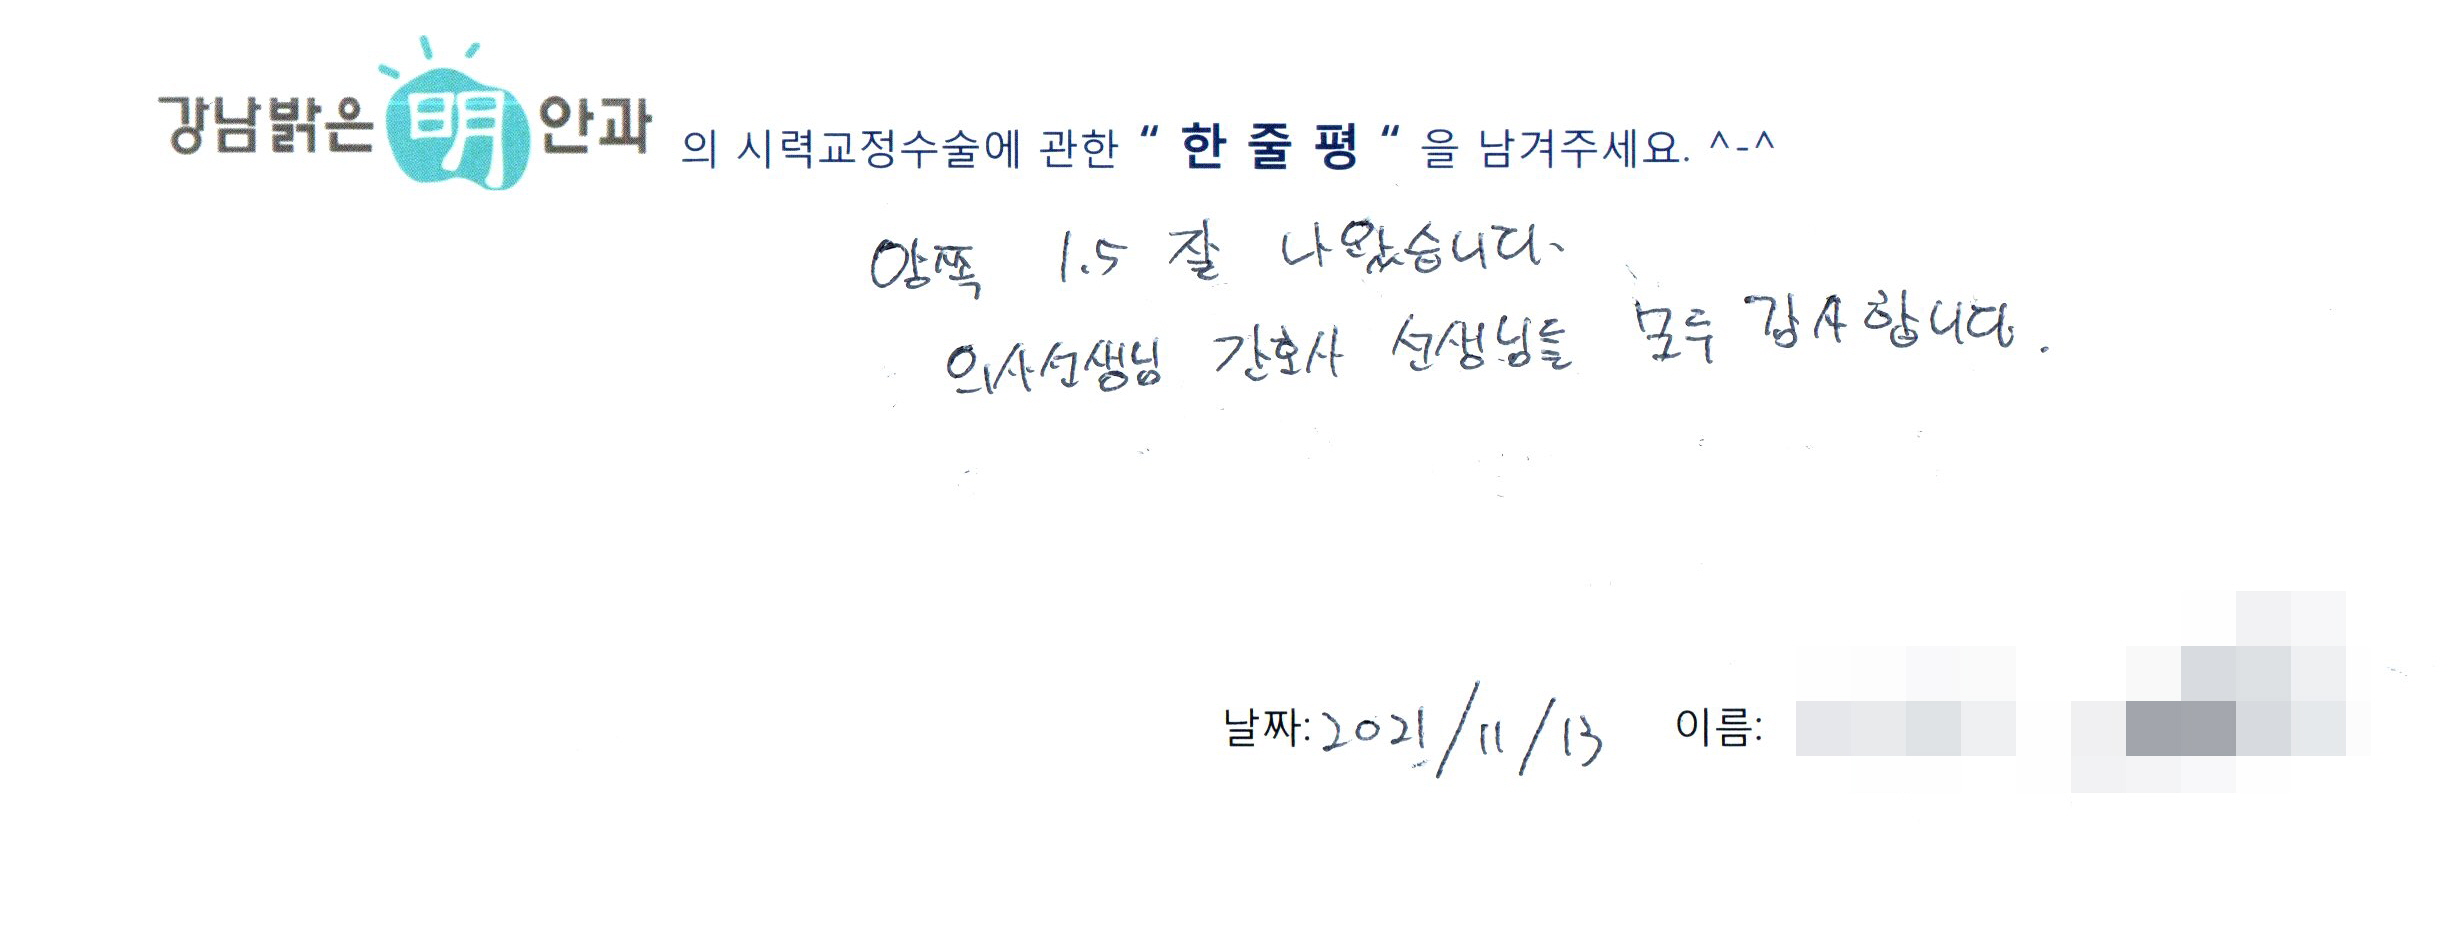 강남밝은 明 안과 의 시력교정수술에 관한 “ 한 줄 평 “ 을 남겨주세요. ^-^
양쪽 1.5 잘 나왔습니다.
의사선생님 간호사 선생님들 모두 감사합니다.
날짜: 2021/11/13 이름: